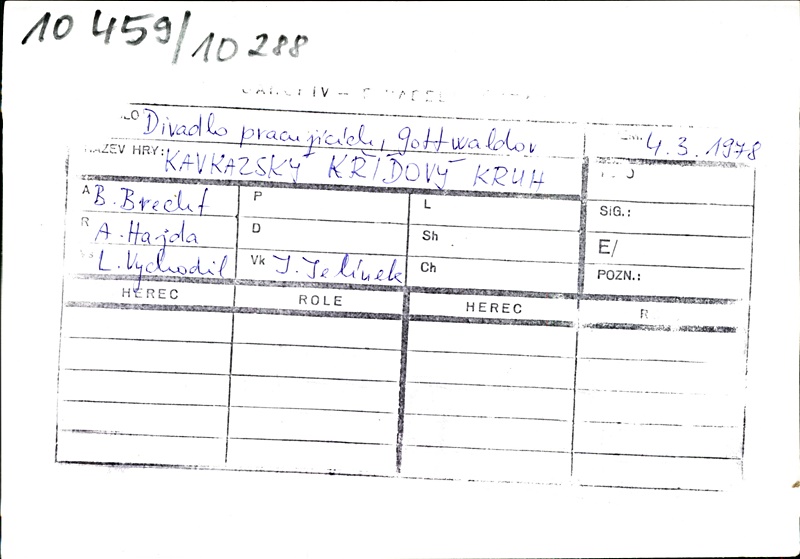 10 459/10 288
LO Divadlo pracujících, Gottwaldov 4.3.1978
NÁZEV HRY: KAVKAZSKÝ KŘÍDOVÝ KRUH
A B. Brecht P L SIG.:
R A. Hajda D Sh E/
L. Vychodil Vk J. Jelínek Ch POZN.:
HEREC ROLE HEREC R